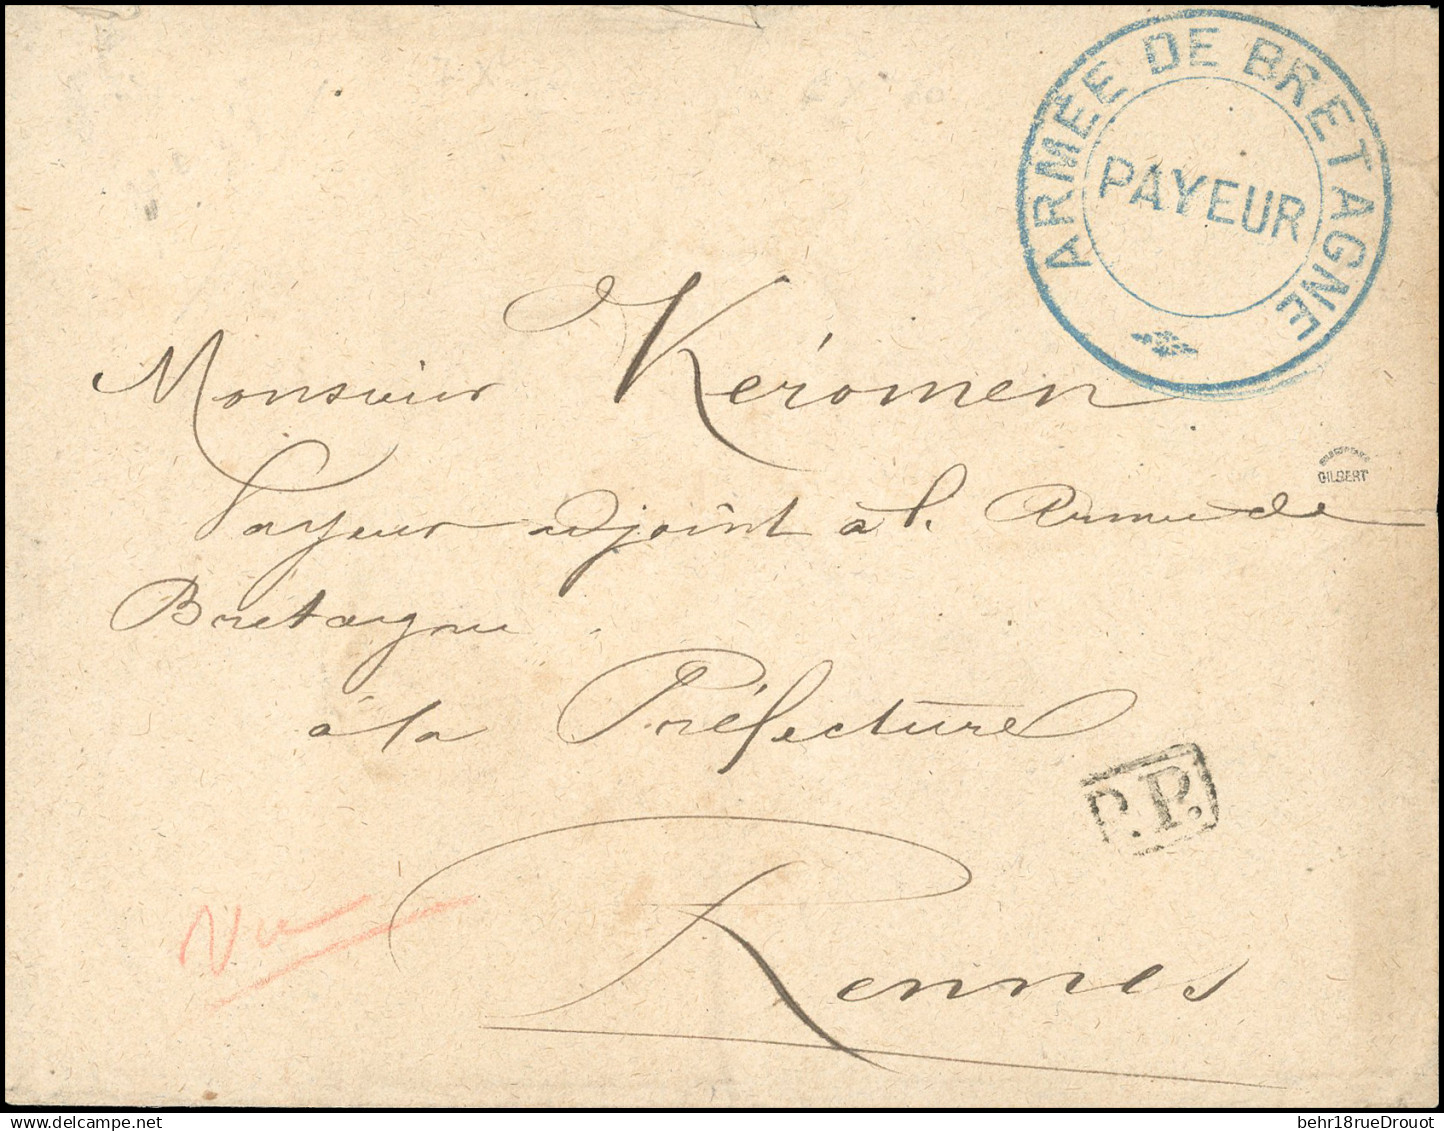 ARMÉE DE BRETAGNE
PAYEUR
Monsieur Kéromen
GILBERT
Payeur adjoint à l. Armée de
Bretagne
à la Préfecture
P.P.
Vu
Rennes
behr18rueDrouot